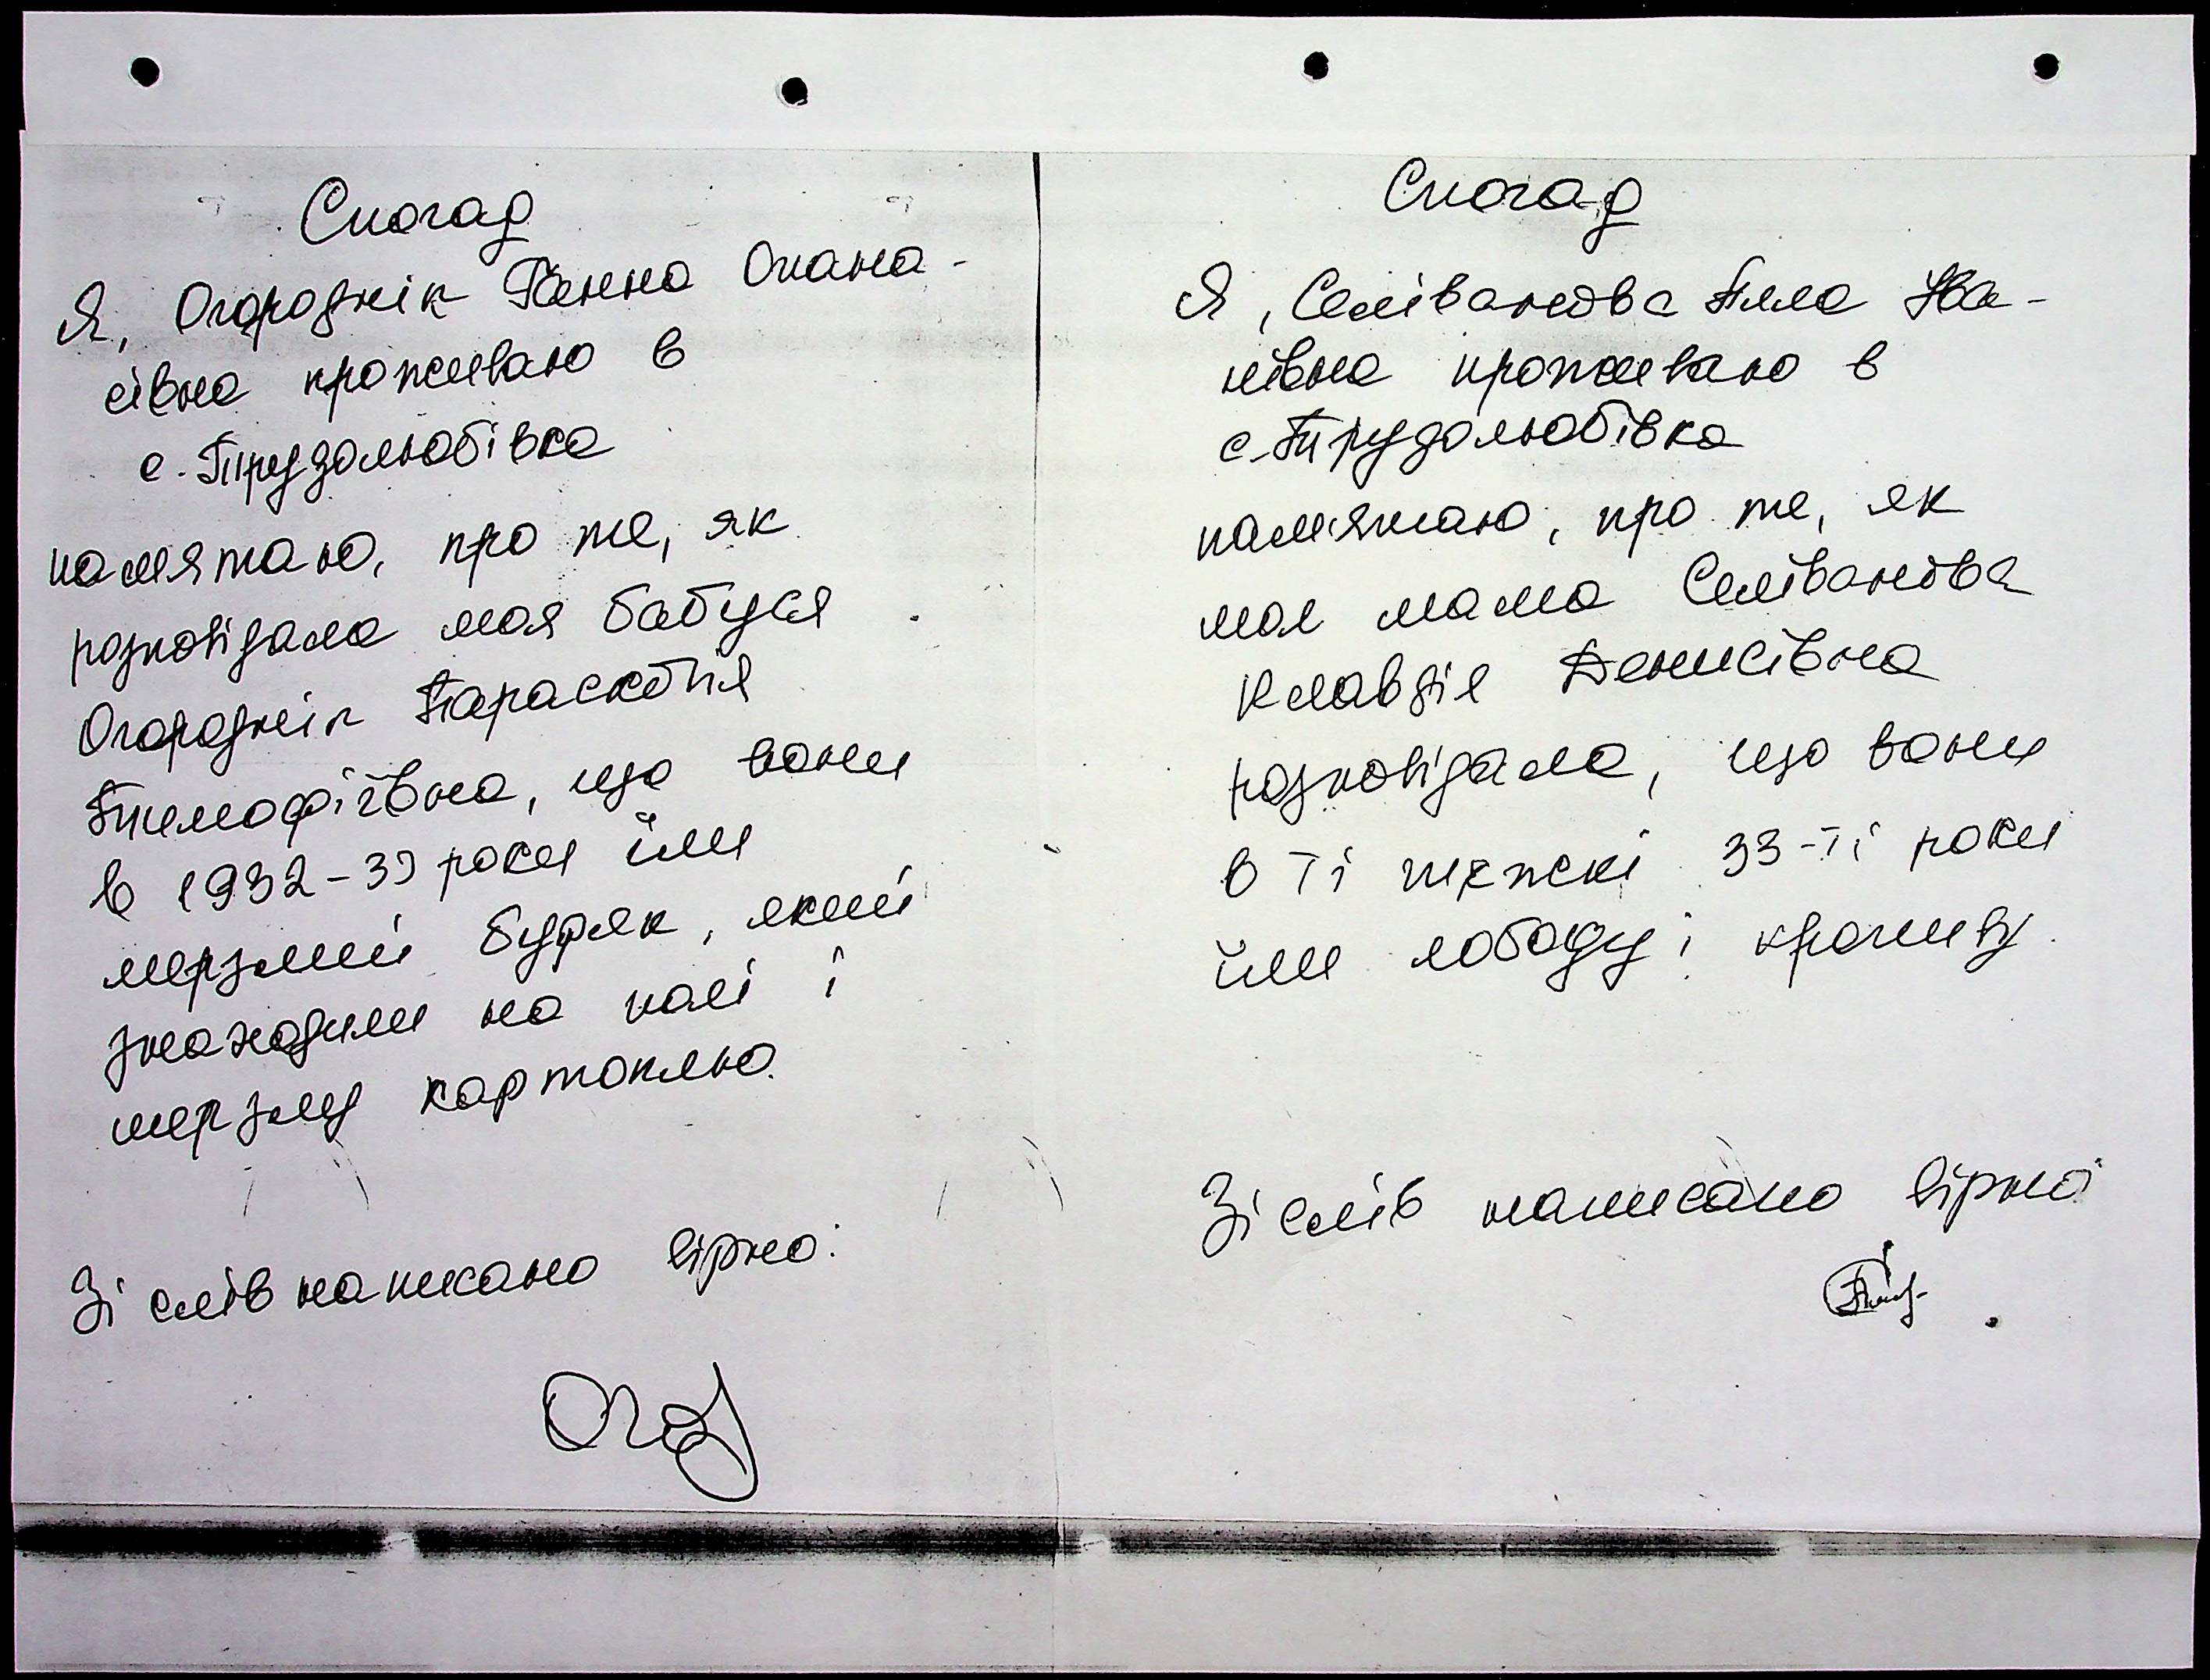 Спогад
Я, Огороднік Ганна Опана-
сівна проживаю в
с. Трудолюбівка
памятаю, про те, як
розповідала моя бабуся
Огороднік Параскофія
Тимофіївна, що вони
в 1932-33 роки їли
мерзлий буряк, який
знаходили на полі і
мерзлу картоплю.
Зі слів написано вірно:
Спогад
Я, Селіванова Іва-
нівна проживаю в
с. Трудолюбівка
пам'ятаю, про те, як
моя мама Селіванова
Клавдія Денисівна
розповідала, що вони
в ті тяжкі 33-ті роки
їли лободу і кропиву.
Зі слів написано вірно